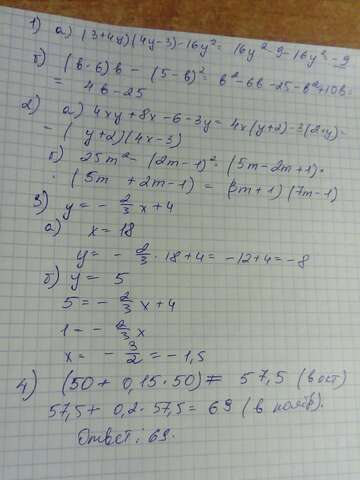 1) а) (3+4y)(4y-3)-16y²= 16y²-9-16y²=-9
б) (b-6)b - (5-b)² = b²-6b-25-b²+10b=
= 4b-25
2) а) 4xy+8x-6-3y= 4x(y+2)-3(2+y)=
= (y+2)(4x-3)
б) 25m²-(2m-1)²= (5m-2m+1)·
· (5m+2m-1) = (3m+1)(7m-1)
3) y=-2/3x+4
а) x=18
y=-2/3·18+4=-12+4=-8
б) y=5
5=-2/3x+4
1=-2/3x
x=-3/2=-1,5
4) (50+0,15·50)= 57,5 (в окт)
57,5+0,2·57,5=69 (в нояб).
Ответ: 69.